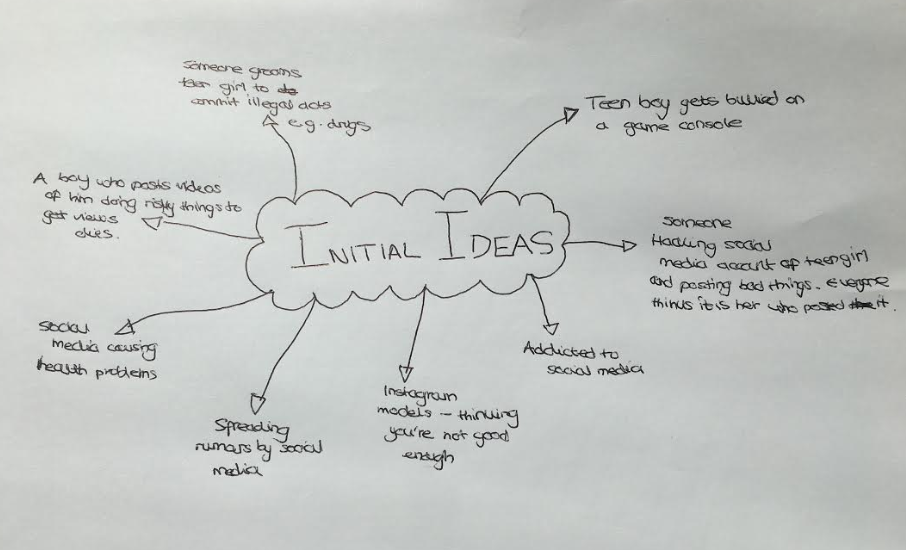 Someone grooms
girl to
commit illegal acts
e.g. drugs
Teen boy gets bullied on
a game console
A boy who posts videos
of him doing risky things to
get views
dies.
INITIAL IDEAS
someone
Hacking social
media account of teen girl
and posting bad things. everyone
thinks it is her who posted it.
social
media causing
health problems
Addicted to
social media
Instagram
models - thinking
you're not good
enough
Spreading
rumors by social
media